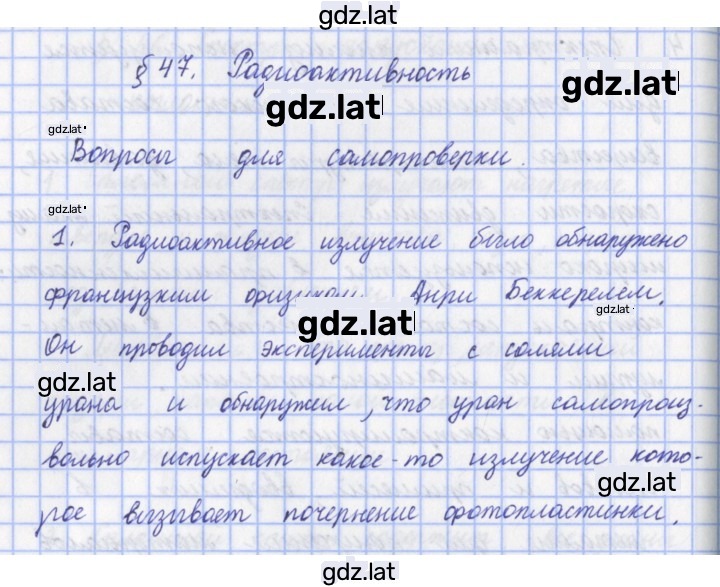 gdz.lat
§47. Радиоактивность
gdz.lat
gdz.lat
gdz.lat
Вопросы для самопроверки.
gdz.lat
1. Радиоактивное излучение было обнаружено
французким физиком Анри Беккерелем.
gdz.lat
gdz.lat
Он проводил эксперименты с солями
gdz.lat
урана и обнаружил, что уран самопроиз-
вольно испускает какое-то излучение кото-
gdz.lat
рое вызывает почернение фотопластинки.
gdz.lat